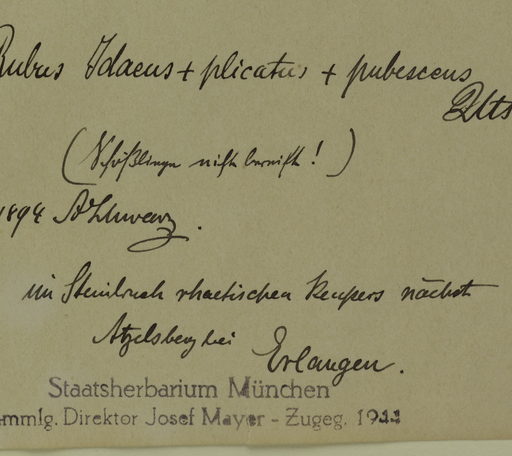 Rubus Idaeus + plicatus + pubescens
(Schößlinge nicht bereift!)
1894 A Schwarz.
im Steinbruch rhaetischen Keupers nächst
Atzelsberg bei Erlangen.
Staatsherbarium München
mmlg. Direktor Josef Mayer - Zugeg.